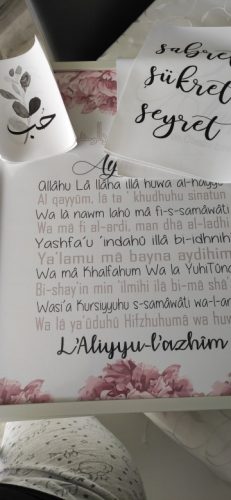 حُب
sabret
şükret
seyret
Ay
Allâhu Lâ Ilâha illâ huwa al-hayyu
Al qayyûm, lâ ta ' khudhuhu sinatun
Wa lâ nawm lahû mâ fi-s-samâwâti
Wa mâ fi al-ardi, man dhâ al-ladhi
Yashfa'u 'indahû illâ bi-idhnihi
Ya'lamu mâ bayna aydihim
Wa mâ Khalfahum Wa la YuhiTûna
Bi-shay'in min 'ilmihi illâ bi-mâ shâ
Wasi'a Kursiyyuhu s-samâwâti wa-l-ar
Wa lâ ya'ûduhû Hifzhuhumâ wa huw
L'Aliyyu-l'azhîm